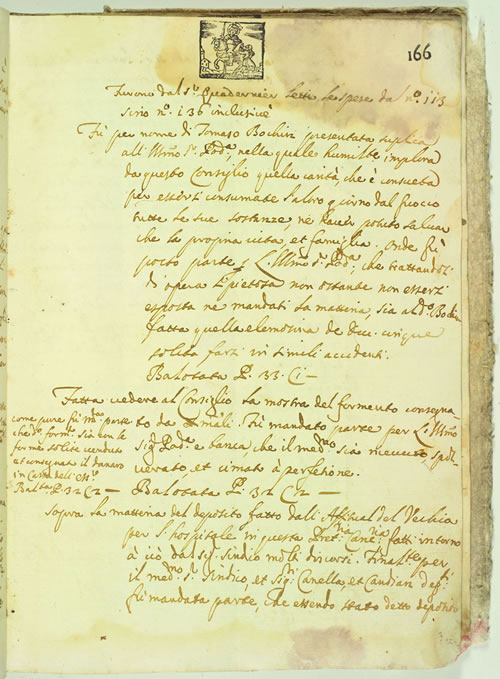 166
Furono dal Sr. Quadernier lette le spese dal no. 113
sino no. 136 inclusive
Fù per nome di Tomaso Bochin presentata suplica
all Illmo Sr. Poda, nella quale humilte implora
da questo Consiglio quella carità, che è consueta
per essersi consumate l'altro giorno dal fuoco
tutte le sue sostanze, ne haver potuto salvar
che la propria vita et famiglia. Onde fù
posto parte L'Illmo Sr. Poda, che trattandosi
di opera pietosa non ostante non essersi
esposta ne mandati la mattina, sia al do. Bochin
fatta quella elemosina de cinque
solita farsi in simili accidenti.
Balotata P. 33. C. 1 -
Fatta vedere al Consiglio la mostra del formento consegna
to da Fù mandato parte per L'Illmo
Sigr. Poda. e banca, che il medmo sia ricevuto,
et cimato à perfetione.
Balotata P. 32 C. 2 -
come pure fù parte
che do. form. sia con le
forme solite venduto
et consegnato il danaro
in Cassa
Balta P. 32 C. 2 -
Sopra la materia del deposito fatto dali del Vechia
per S. hospitale in questa fatti intorno
à ciò dal Sigr. Sindico molti discorsi. Finalte per
il medmo Sr. Sindico, et Sigri Canella, et Candian
fù mandata parte, che essendo stato detto deposito